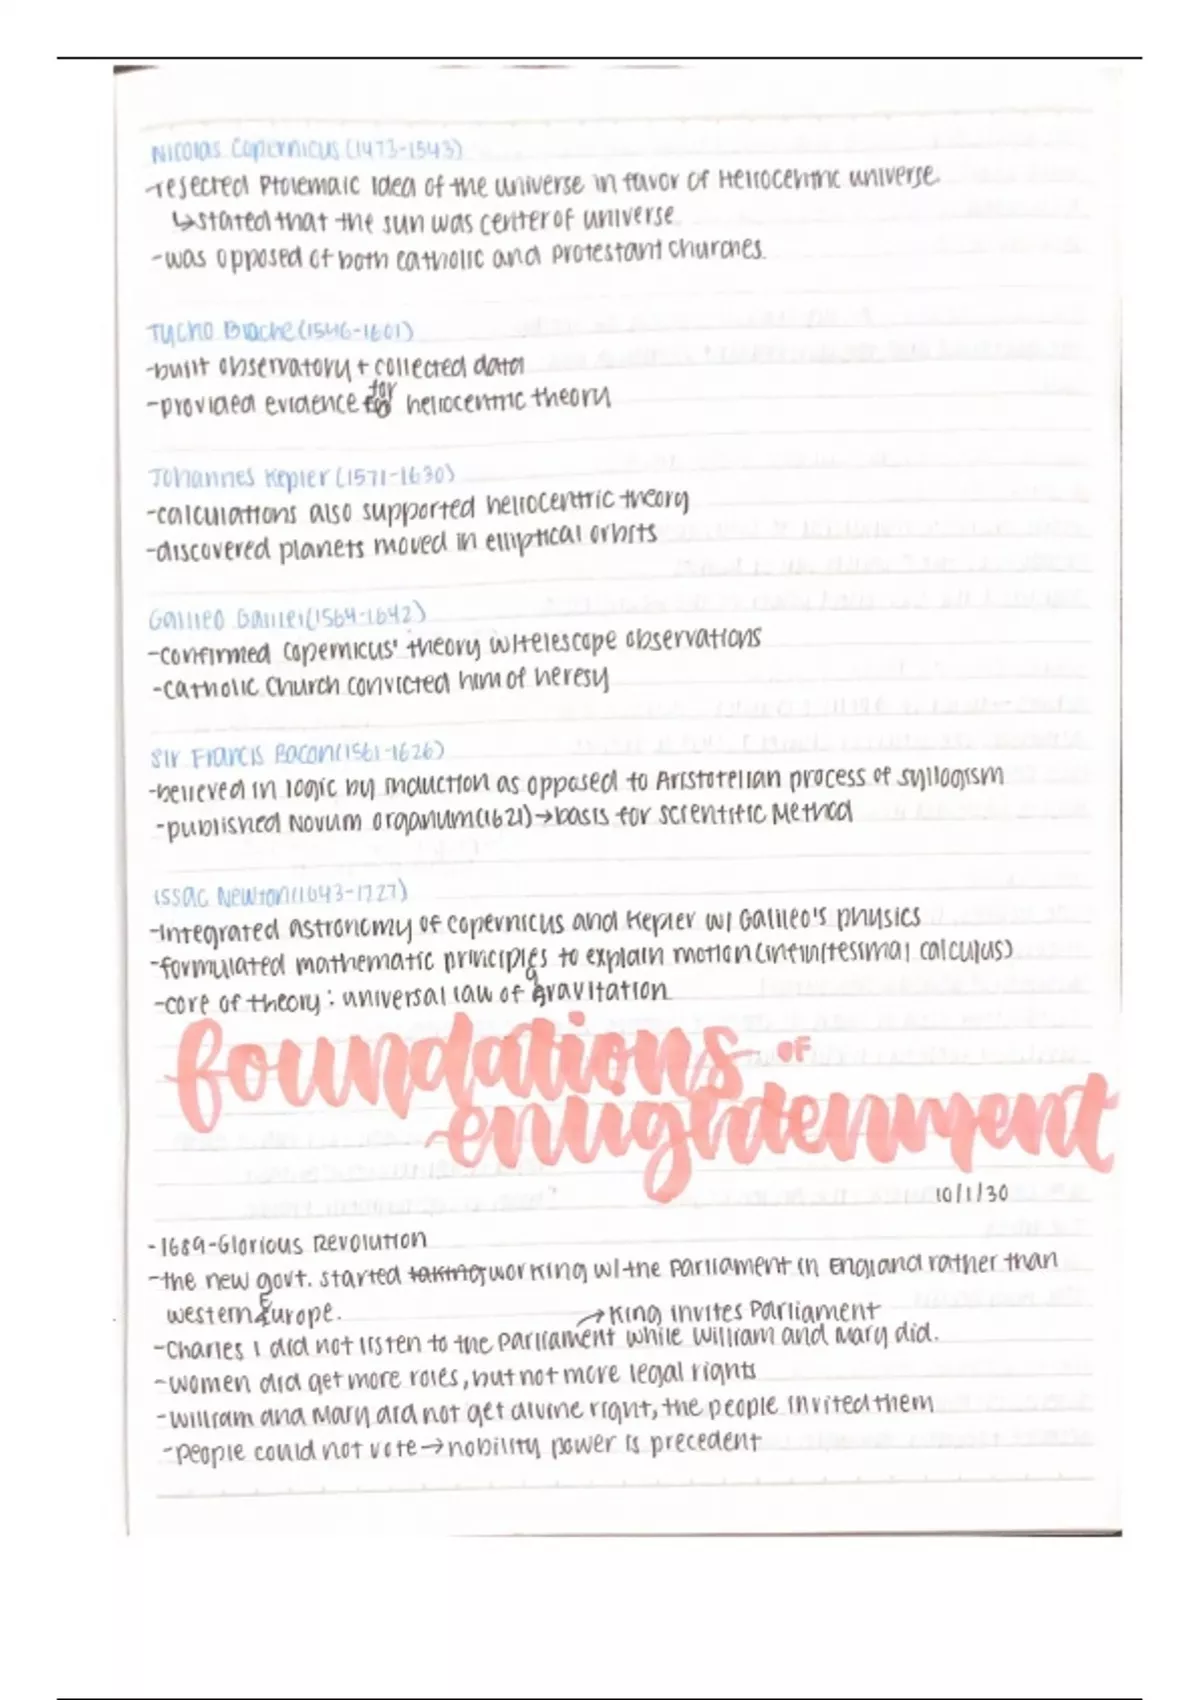 Nicolas Copernicus (1473-1543)
-rejected Ptolemaic idea of the universe in favor of Heliocentric universe.
↳stated that the sun was center of universe.
-was opposed of both catholic and Protestant churches.
Tycho Brache (1546-1601)
-built observatory + collected data
-provided evidence for heliocentric theory
Johannes Kepler (1571-1630)
-calculations also supported heliocentric theory
-discovered planets moved in elliptical orbits
Galileo Galilei (1564-1642)
-confirmed Copernicus' theory w/telescope observations
-Catholic Church convicted him of heresy
Sir Francis Bacon (1561-1626)
-believed in logic by induction as opposed to Aristotelian process of syllogism
-published Novum Organum (1621)→basis for scientific Method
Issac Newton (1643-1727)
-integrated astronomy of Copernicus and Kepler w/ Galileo's physics
-formulated mathematic principles to explain motion (infinitesimal calculus)
-core of theory: universal law of gravitation
foundations of
enlightenment
10/1/30
-1689-Glorious Revolution
-the new govt. started taking working w/ the Parliament in England rather than
western Europe.
→King invites Parliament
-Charles I did not listen to the Parliament while William and Mary did.
-women did get more roles, but not more legal rights
-William and Mary did not get divine right, the people invited them
-people could not vote→nobility power is precedent